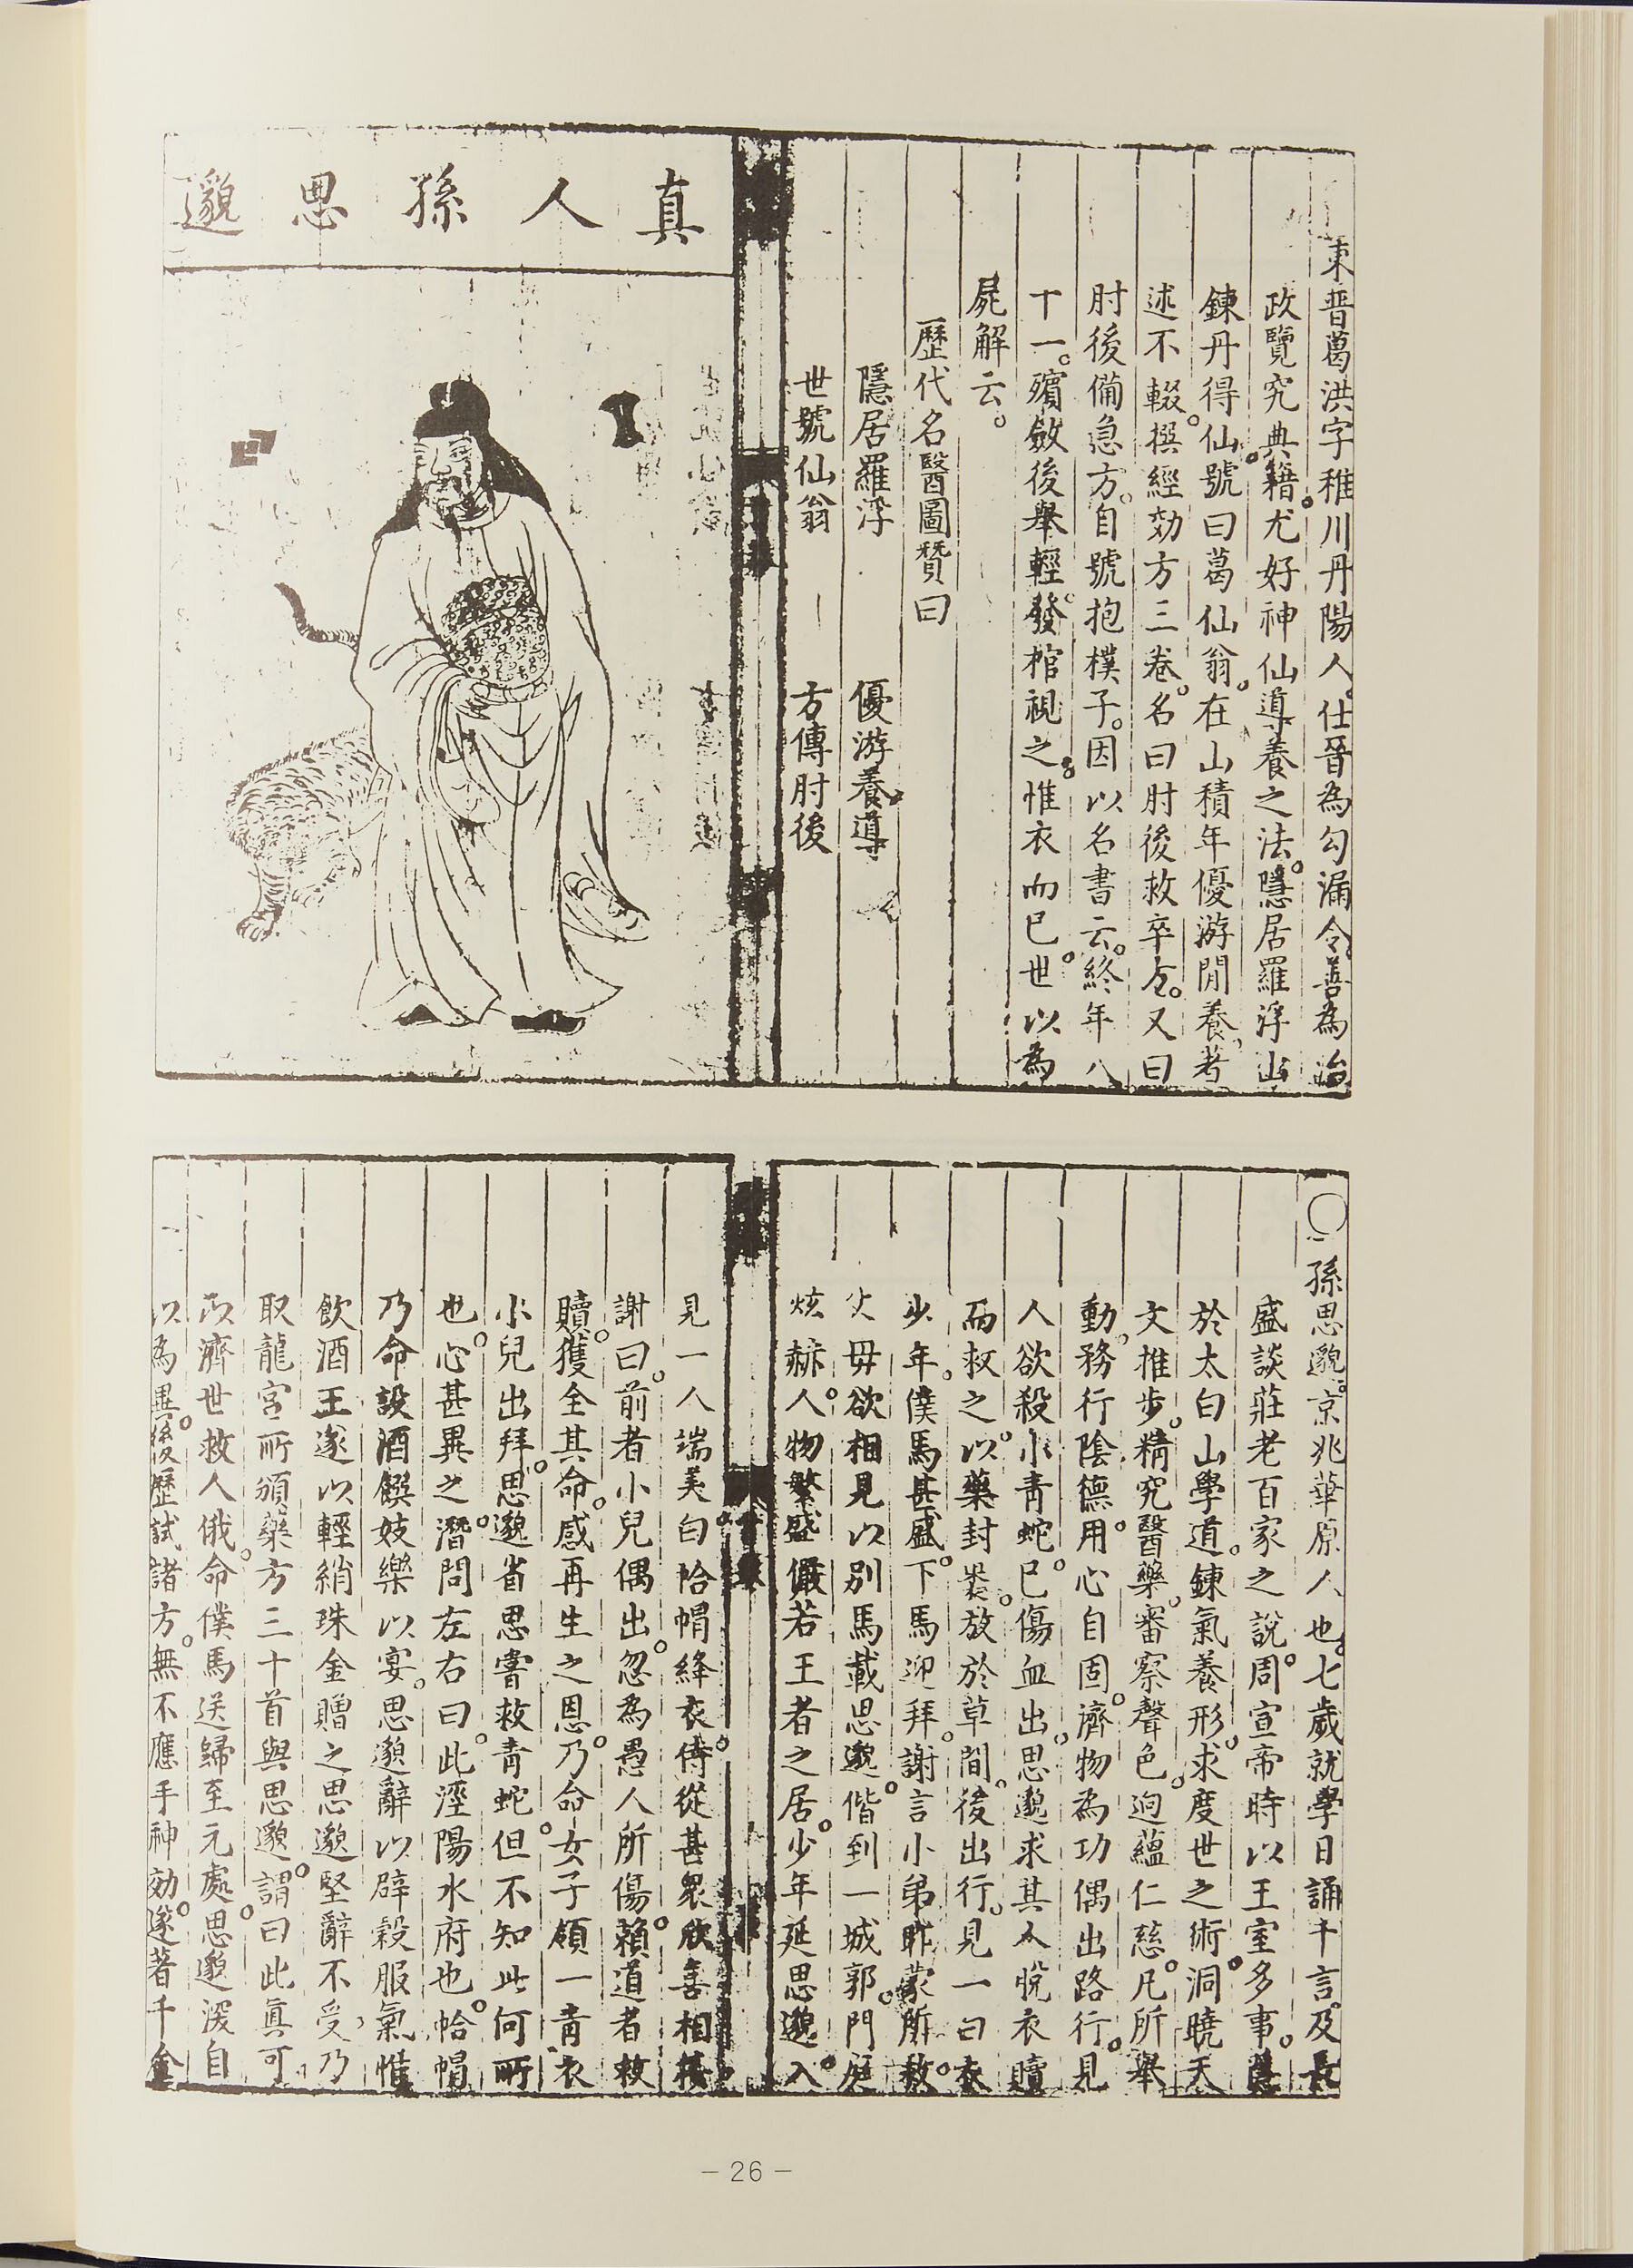 東晋葛洪字稚川丹陽人仕晉為勾漏令善為治
政覽究典籍尤好神仙導養之法隱居羅浮山
鍊丹得仙號曰葛仙翁在山積年優游閒養考
述不輟撰經効方三卷名曰肘後救卒方又曰
肘後備急方自號抱樸子因以名書云終年八
十一殯斂後舉輕發棺視之惟衣而已世以為
屍解云
歷代名醫圖贊曰
隱居羅浮 優游養導
世號仙翁 方傳肘後
真人孫思邈
○孫思邈京兆華原人也七歲就學日誦千言及長
盛談莊老百家之說周宣帝時以王室多事隱
於太白山學道鍊氣養形求度世之術洞曉天
文推步精究醫藥審察聲色迥蘊仁慈凡所舉
動務行陰德用心自固濟物為功偶出路行見
人欲殺小青蛇已傷血出思邈求其人脫衣贖
而救之以藥封裹放於草間後出行見一白衣
少年僕馬甚盛下馬迎拜謝言小弟昨蒙所救
父毋欲相見以別馬載思邈偕到一城郭門庭
炫赫人物繁盛儼若王者之居少年延思邈入
見一人端美白恰帽絳衣侍從甚衆欣喜相接
謝曰前者小兒偶出忽為愚人所傷賴道者救
贖獲全其命感再生之恩乃命女子領一青衣
小兒出拜思邈省思嘗救青蛇但不知此何所
也心甚異之潛問左右曰此涇陽水府也恰帽
乃命設酒饌妓樂以宴思邈辭以辟穀服氣惟
飲酒王遂以輕綃珠金贈之思邈堅辭不受乃
取龍宮所頒藥方三十首與思邈謂曰此真可
以濟世救人俄命僕馬送歸至元處思邈深自
以為異後歷試諸方無不應手神効遂著千金
－26－